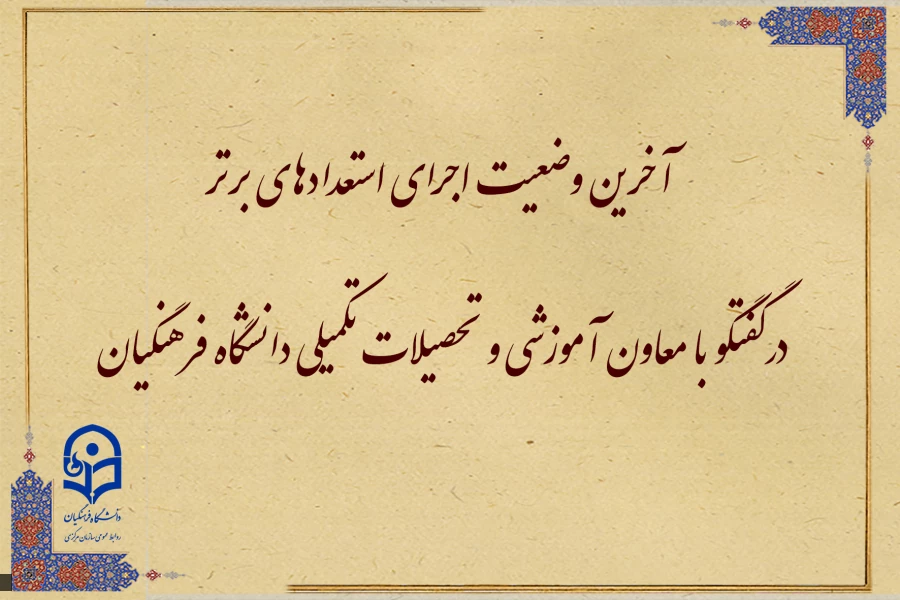 آخرین وضعیت اجرای استعدادهای برتر
در گفتگو با معاون آموزشی و تحصیلات تکمیلی دانشگاه فرهنگیان
دانشگاه فرهنگیان
روابط عمومی سازمان مرکزی